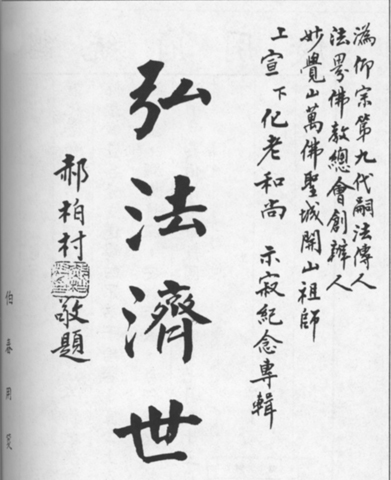 溈仰宗第九代嗣法傳人
法界佛教總會創辦人
妙覺山萬佛聖城開山祖師
上宣下化老和尚 示寂紀念專輯
弘法濟世
郝柏村 敬題